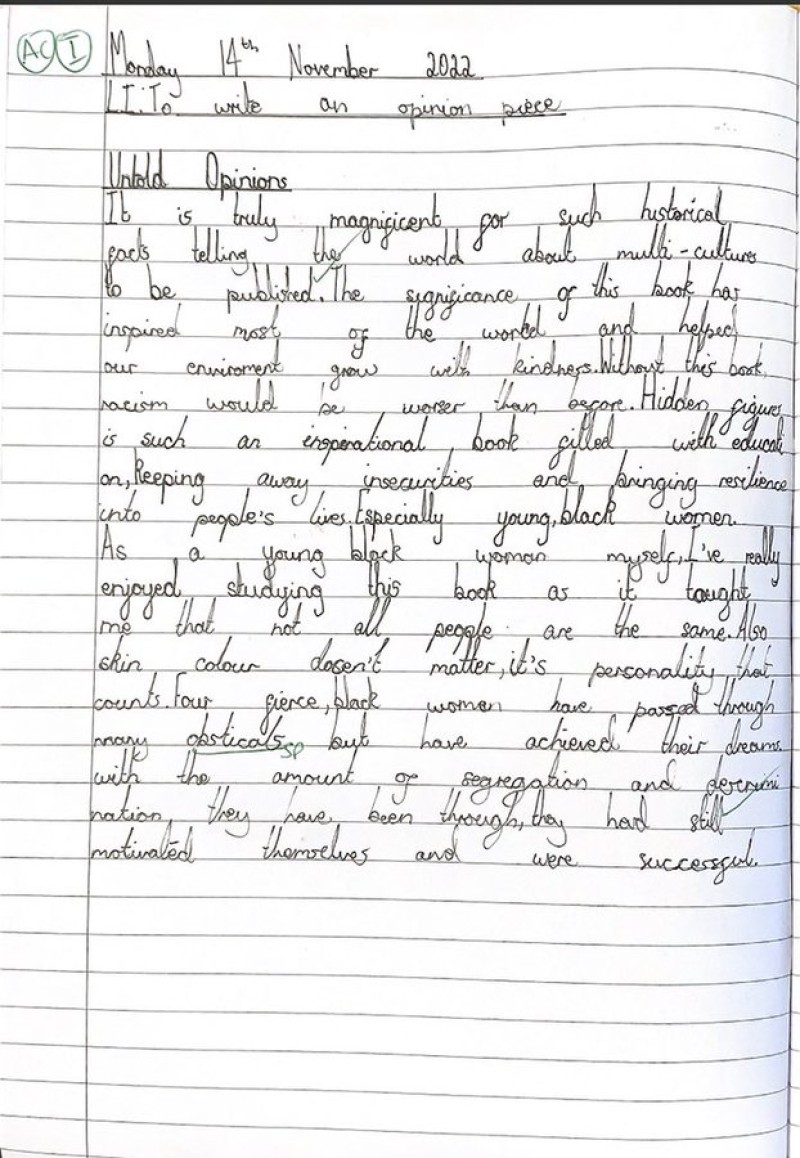 AC I Monday 14th November 2022
LI: To write an opinion piece
Untold Opinions
It is truly magnificent for such historical
facts telling the world about multi-cultures
to be published. The significance of this book has
inspired most of the world and helped
our enviroment grow with kindness. Without this book,
racism would be worser than before. Hidden figures
is such an inspirational book filled with educati
on, Keeping away insecurities and bringing resilience
into people's lives. Especially young, black women.
As a young black woman myself, I've really
enjoyed studying this book as it taught
me that not all people are the same. Also
skin colour dosen't matter, it's personality that
counts. Four fierce, black women have passed through
many obsticals sp but have achieved their dreams.
with the amount of segregation and descrimi
nation, they have been through, they had still
motivated themselves and were successful.